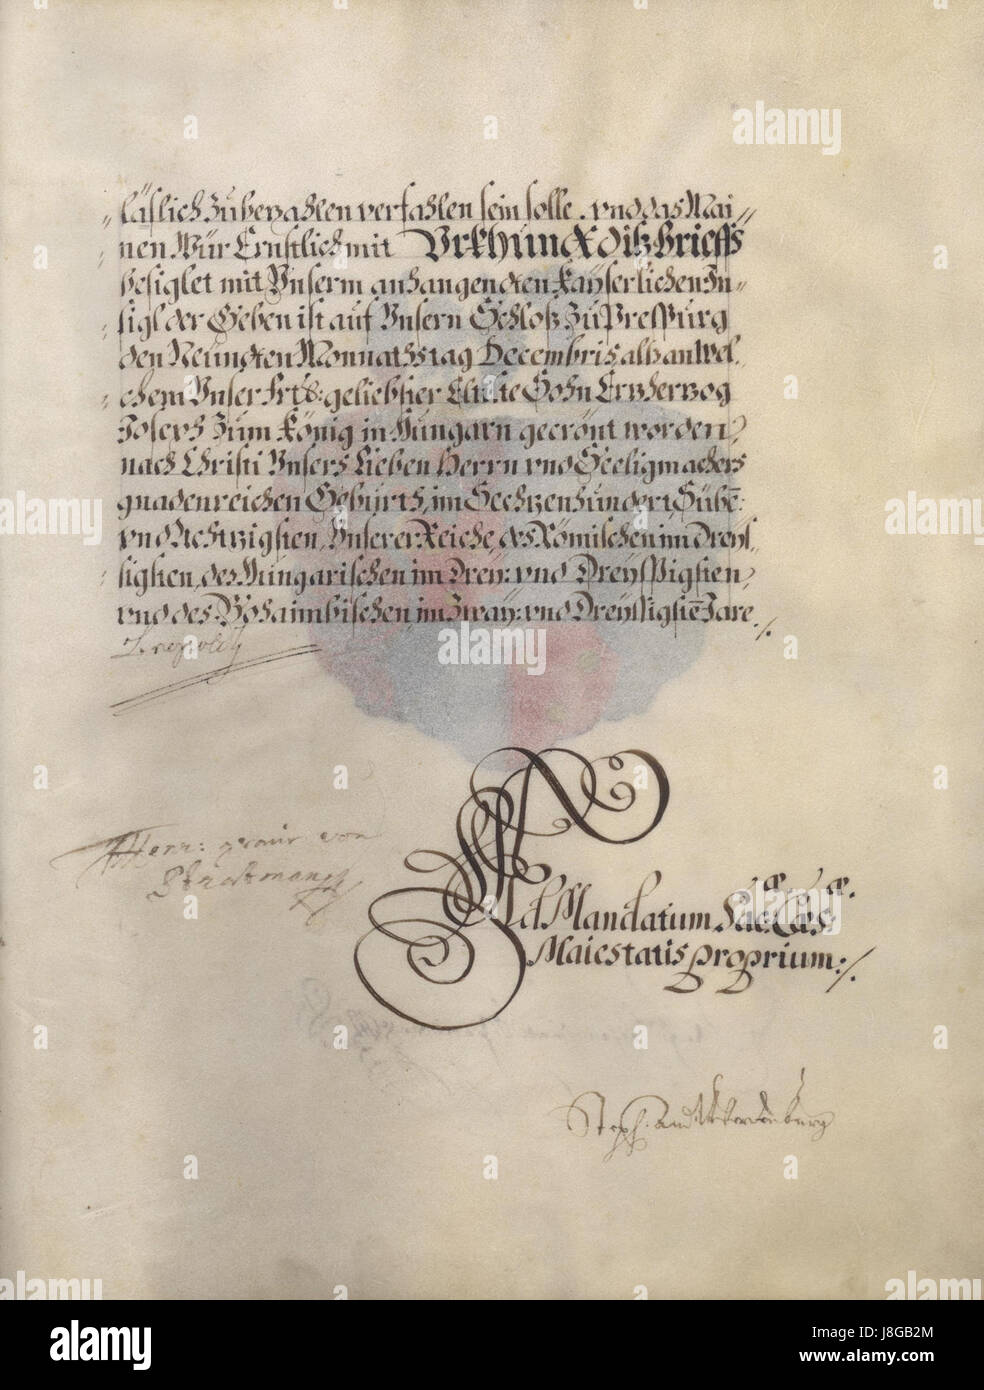 läslich zübezahlen verfahlen sein solle. vnd das Mai-
nen Wür Ernstlich mit Vrkhundt ditz brieffs
besiglet mit Vnserm anhangendten Kayserlichen In-
sigl der Geben ist auf Vnsern Schloß zu Prespurg
den Neündten Monnathstag Decembris, alß an Wel-
chem Vnser geliebster Elteste Sohn Erzherzog
Joseph Zum König in Hungarn gecrönt worden,
nach Christi Vnsers Lieben Herrn vnd Seeligmachers
gnadenreichen Gebürth, im Sechzenhundert Sübē:
vnd Achtzigsten, Vnserer Reiche, des Römischen im Dreys-
sigsten, des Hungarischen im Drey: vnd Dreyssigsten,
vnd des Böhaimbischen, im Zway: vnd Dreyssigstē Jare ./.
Leopoldt
Herr: von
Strattmann
Ad Mandatum Sac:æ Cæs:æ
Maiestatis proprium: ./.
Steph: And:
alamy
a
alamy
Image ID: J8GB2M
www.alamy.com